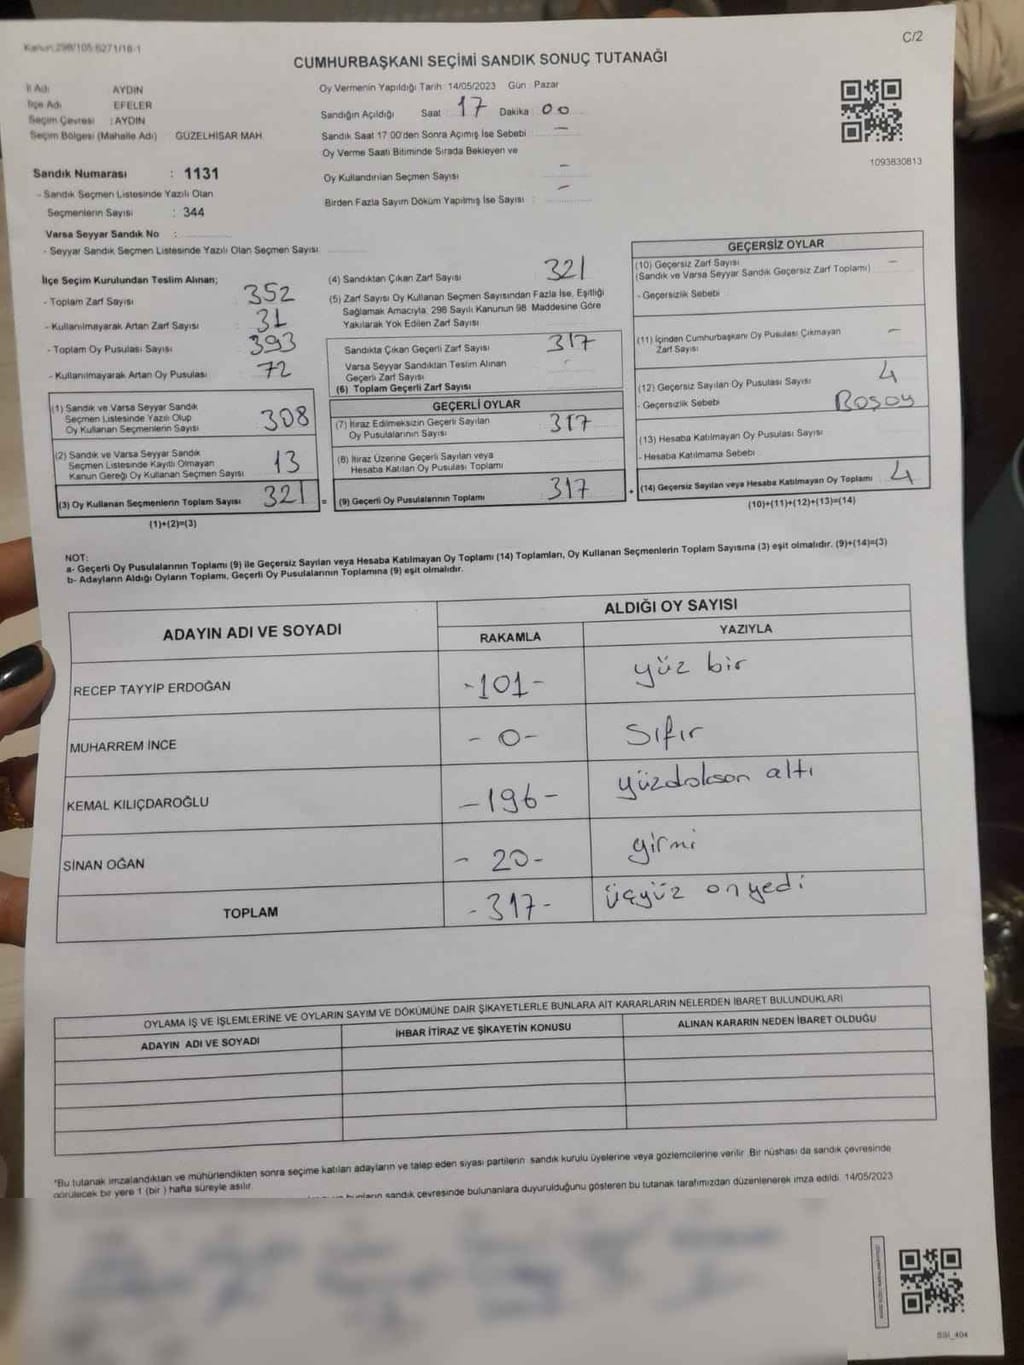 Kanun:298/105-6271/18-1
C/2
CUMHURBAŞKANI SEÇİMİ SANDIK SONUÇ TUTANAĞI
İl Adı : AYDIN
İlçe Adı EFELER
Seçim Çevresi : AYDIN
Seçim Bölgesi (Mahalle Adı) GÜZELHİSAR MAH.
Oy Vermenin Yapıldığı Tarih :14/05/2023 Gün : Pazar
Sandığın Açıldığı Saat 17 Dakika 00
Sandık Saat 17:00'den Sonra Açılmış İse Sebebi –
Oy Verme Saati Bitiminde Sırada Bekleyen ve
Oy Kullandırılan Seçmen Sayısı –
Birden Fazla Sayım Döküm Yapılmış İse Sayısı : –
1093830813
Sandık Numarası : 1131
- Sandık Seçmen Listesinde Yazılı Olan
Seçmenlerin Sayısı : 344
Varsa Seyyar Sandık No :
- Seyyar Sandık Seçmen Listesinde Yazılı Olan Seçmen Sayısı:
İlçe Seçim Kurulundan Teslim Alınan;
- Toplam Zarf Sayısı 352
- Kullanılmayarak Artan Zarf Sayısı 31
- Toplam Oy Pusulası Sayısı 393
- Kullanılmayarak Artan Oy Pusulası 72
(1) Sandık ve Varsa Seyyar Sandık
Seçmen Listesinde Yazılı Olup
Oy Kullanan Seçmenlerin Sayısı 308
(2) Sandık ve Varsa Seyyar Sandık
Seçmen Listesinde Kayıtlı Olmayan
Kanun Gereği Oy Kullanan Seçmen Sayısı 13
(3) Oy Kullanan Seçmenlerin Toplam Sayısı 321
(1)+(2)=(3)
(4) Sandıktan Çıkan Zarf Sayısı 321
(5) Zarf Sayısı Oy Kullanan Seçmen Sayısından Fazla İse, Eşitliği
Sağlamak Amacıyla; 298 Sayılı Kanunun 98. Maddesine Göre
Yakılarak Yok Edilen Zarf Sayısı
Sandıkta Çıkan Geçerli Zarf Sayısı 317
Varsa Seyyar Sandıktan Teslim Alınan
Geçerli Zarf Sayısı -
(6) Toplam Geçerli Zarf Sayısı
GEÇERLİ OYLAR
(7) İtiraz Edilmeksizin Geçerli Sayılan
Oy Pusulalarının Sayısı 317
(8) İtiraz Üzerine Geçerli Sayılan veya
Hesaba Katılan Oy Pusulası Toplamı
= (9) Geçerli Oy Pusulalarının Toplamı 317
GEÇERSİZ OYLAR
(10) Geçersiz Zarf Sayısı –
(Sandık ve Varsa Seyyar Sandık Geçersiz Zarf Toplamı)
- Geçersizlik Sebebi
(11) İçinden Cumhurbaşkanı Oy Pusulası Çıkmayan
Zarf Sayısı –
(12) Geçersiz Sayılan Oy Pusulası Sayısı 4
- Geçersizlik Sebebi
(13) Hesaba Katılmayan Oy Pusulası Sayısı
- Hesaba Katılmama Sebebi
+ (14) Geçersiz Sayılan veya Hesaba Katılmayan Oy Toplamı 4
(10)+(11)+(12)+(13)=(14)
NOT:
a- Geçerli Oy Pusulalarının Toplamı (9) ile Geçersiz Sayılan veya Hesaba Katılmayan Oy Toplamı (14) Toplamları, Oy Kullanan Seçmenlerin Toplam Sayısına (3) eşit olmalıdır. (9)+(14)=(3)
b- Adayların Aldığı Oyların Toplamı, Geçerli Oy Pusulalarının Toplamına (9) eşit olmalıdır.
ADAYIN ADI VE SOYADI
ALDIĞI OY SAYISI
RAKAMLA YAZIYLA
RECEP TAYYİP ERDOĞAN -101- yüz bir
MUHARREM İNCE -0- Sıfır
KEMAL KILIÇDAROĞLU -196- yüzdokson altı
SİNAN OĞAN -20- yirmi
TOPLAM -317- üçyüz onyedi
OYLAMA İŞ VE İŞLEMLERİNE VE OYLARIN SAYIM VE DÖKÜMÜNE DAİR ŞİKAYETLERLE BUNLARA AİT KARARLARIN NELERDEN İBARET BULUNDUKLARI
ADAYIN ADI VE SOYADI
İHBAR İTİRAZ VE ŞİKAYETİN KONUSU
ALINAN KARARIN NEDEN İBARET OLDUĞU
*Bu tutanak imzalandıktan ve mühürlendikten sonra seçime katılan adayların ve talep eden siyasi partilerin sandık kurulu üyelerine veya gözlemcilerine verilir. Bir nüshası da sandık çevresinde
görülecek bir yere 1 (bir ) hafta süreyle asılır.
bunların sandık çevresinde bulunanlara duyurulduğunu gösteren bu tutanak tarafımızdan düzenlenerek imza edildi. 14/05/2023
SSI_404